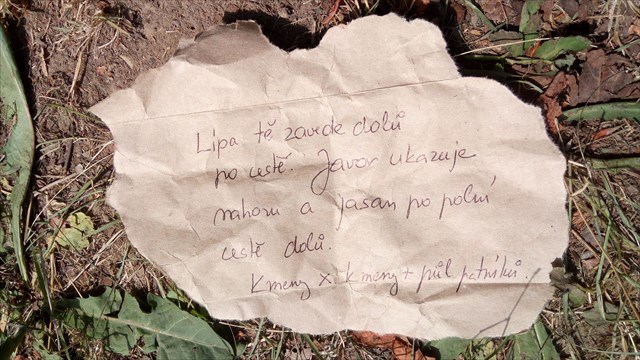 Lípa tě zavede dolů
po cestě. Javor ukazuje
nahoru a jasan po polní
cestě dolů.
Kmeny x kmeny + půl patníků.